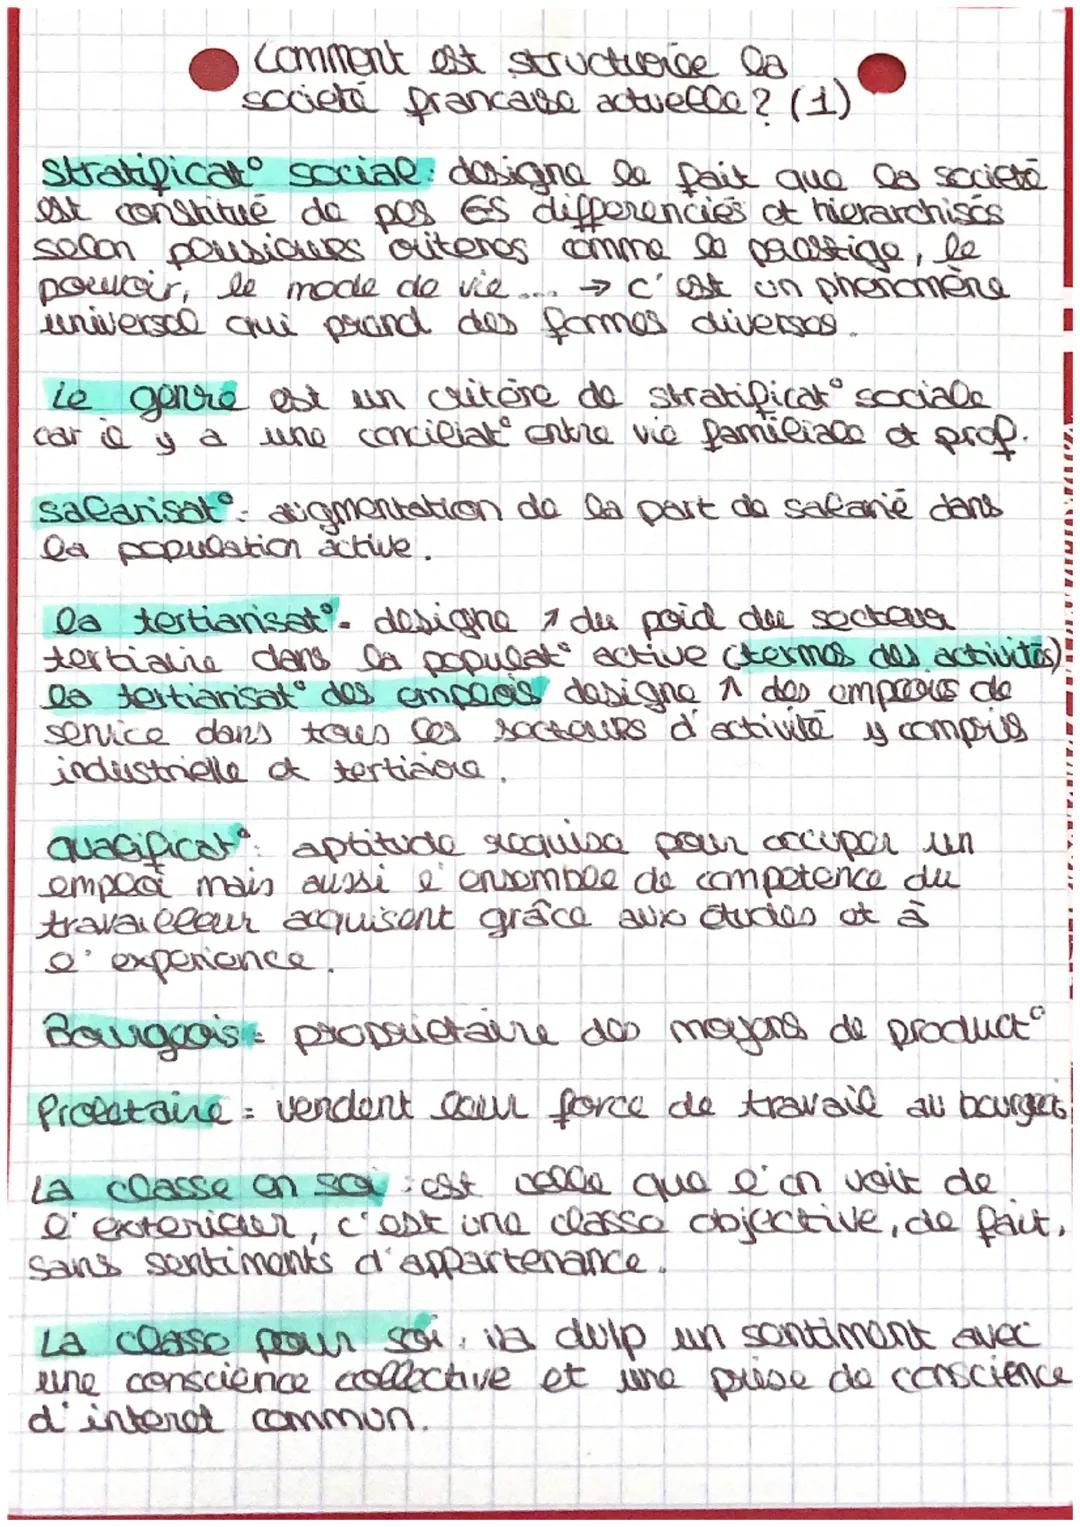 Comment est structurée la
société francaise actuelle? (1)
Stratificat° social: designe le fait que la société
est constitué de pos ES differenciés et hierarchisés
selon plusieurs criteres comme le prestige, le
pouvoir, le mode de vie... → c'est un phenomène
universel qui prend des formes diverses.
Le genre est un critère de stratificat° sociale
car il y a une conciliat° entre vie familiale et prof.
salarisat°: augmentation de la part de salarié dans
la population active.
la tertiarisat°- designe ↗ du poid du secteur
tertiaire dans la populat° active (termes des activités)
la tertiarisat° des emplois designe ↗ des emplois de
service dans tous les secteurs d'activité y compris
industrielle et tertiaire.
qualificat°: aptitude requise pour occuper un
emploi mais aussi l'ensemble de competence du
travailleur acquisent grâce aux études et à
l'experience.
Bourgeois= proprietaire des moyens de product°
Proletaire= vendent leur force de travail au bourgeois
La classe en soi: est celle que l'on voit de
l'exterieur, c'est une classe objective, de fait,
sans sentiments d'appartenance.
La classe pour soi: va dvlp un sentiment avec
une conscience collective et une prise de conscience
d'interet commun.